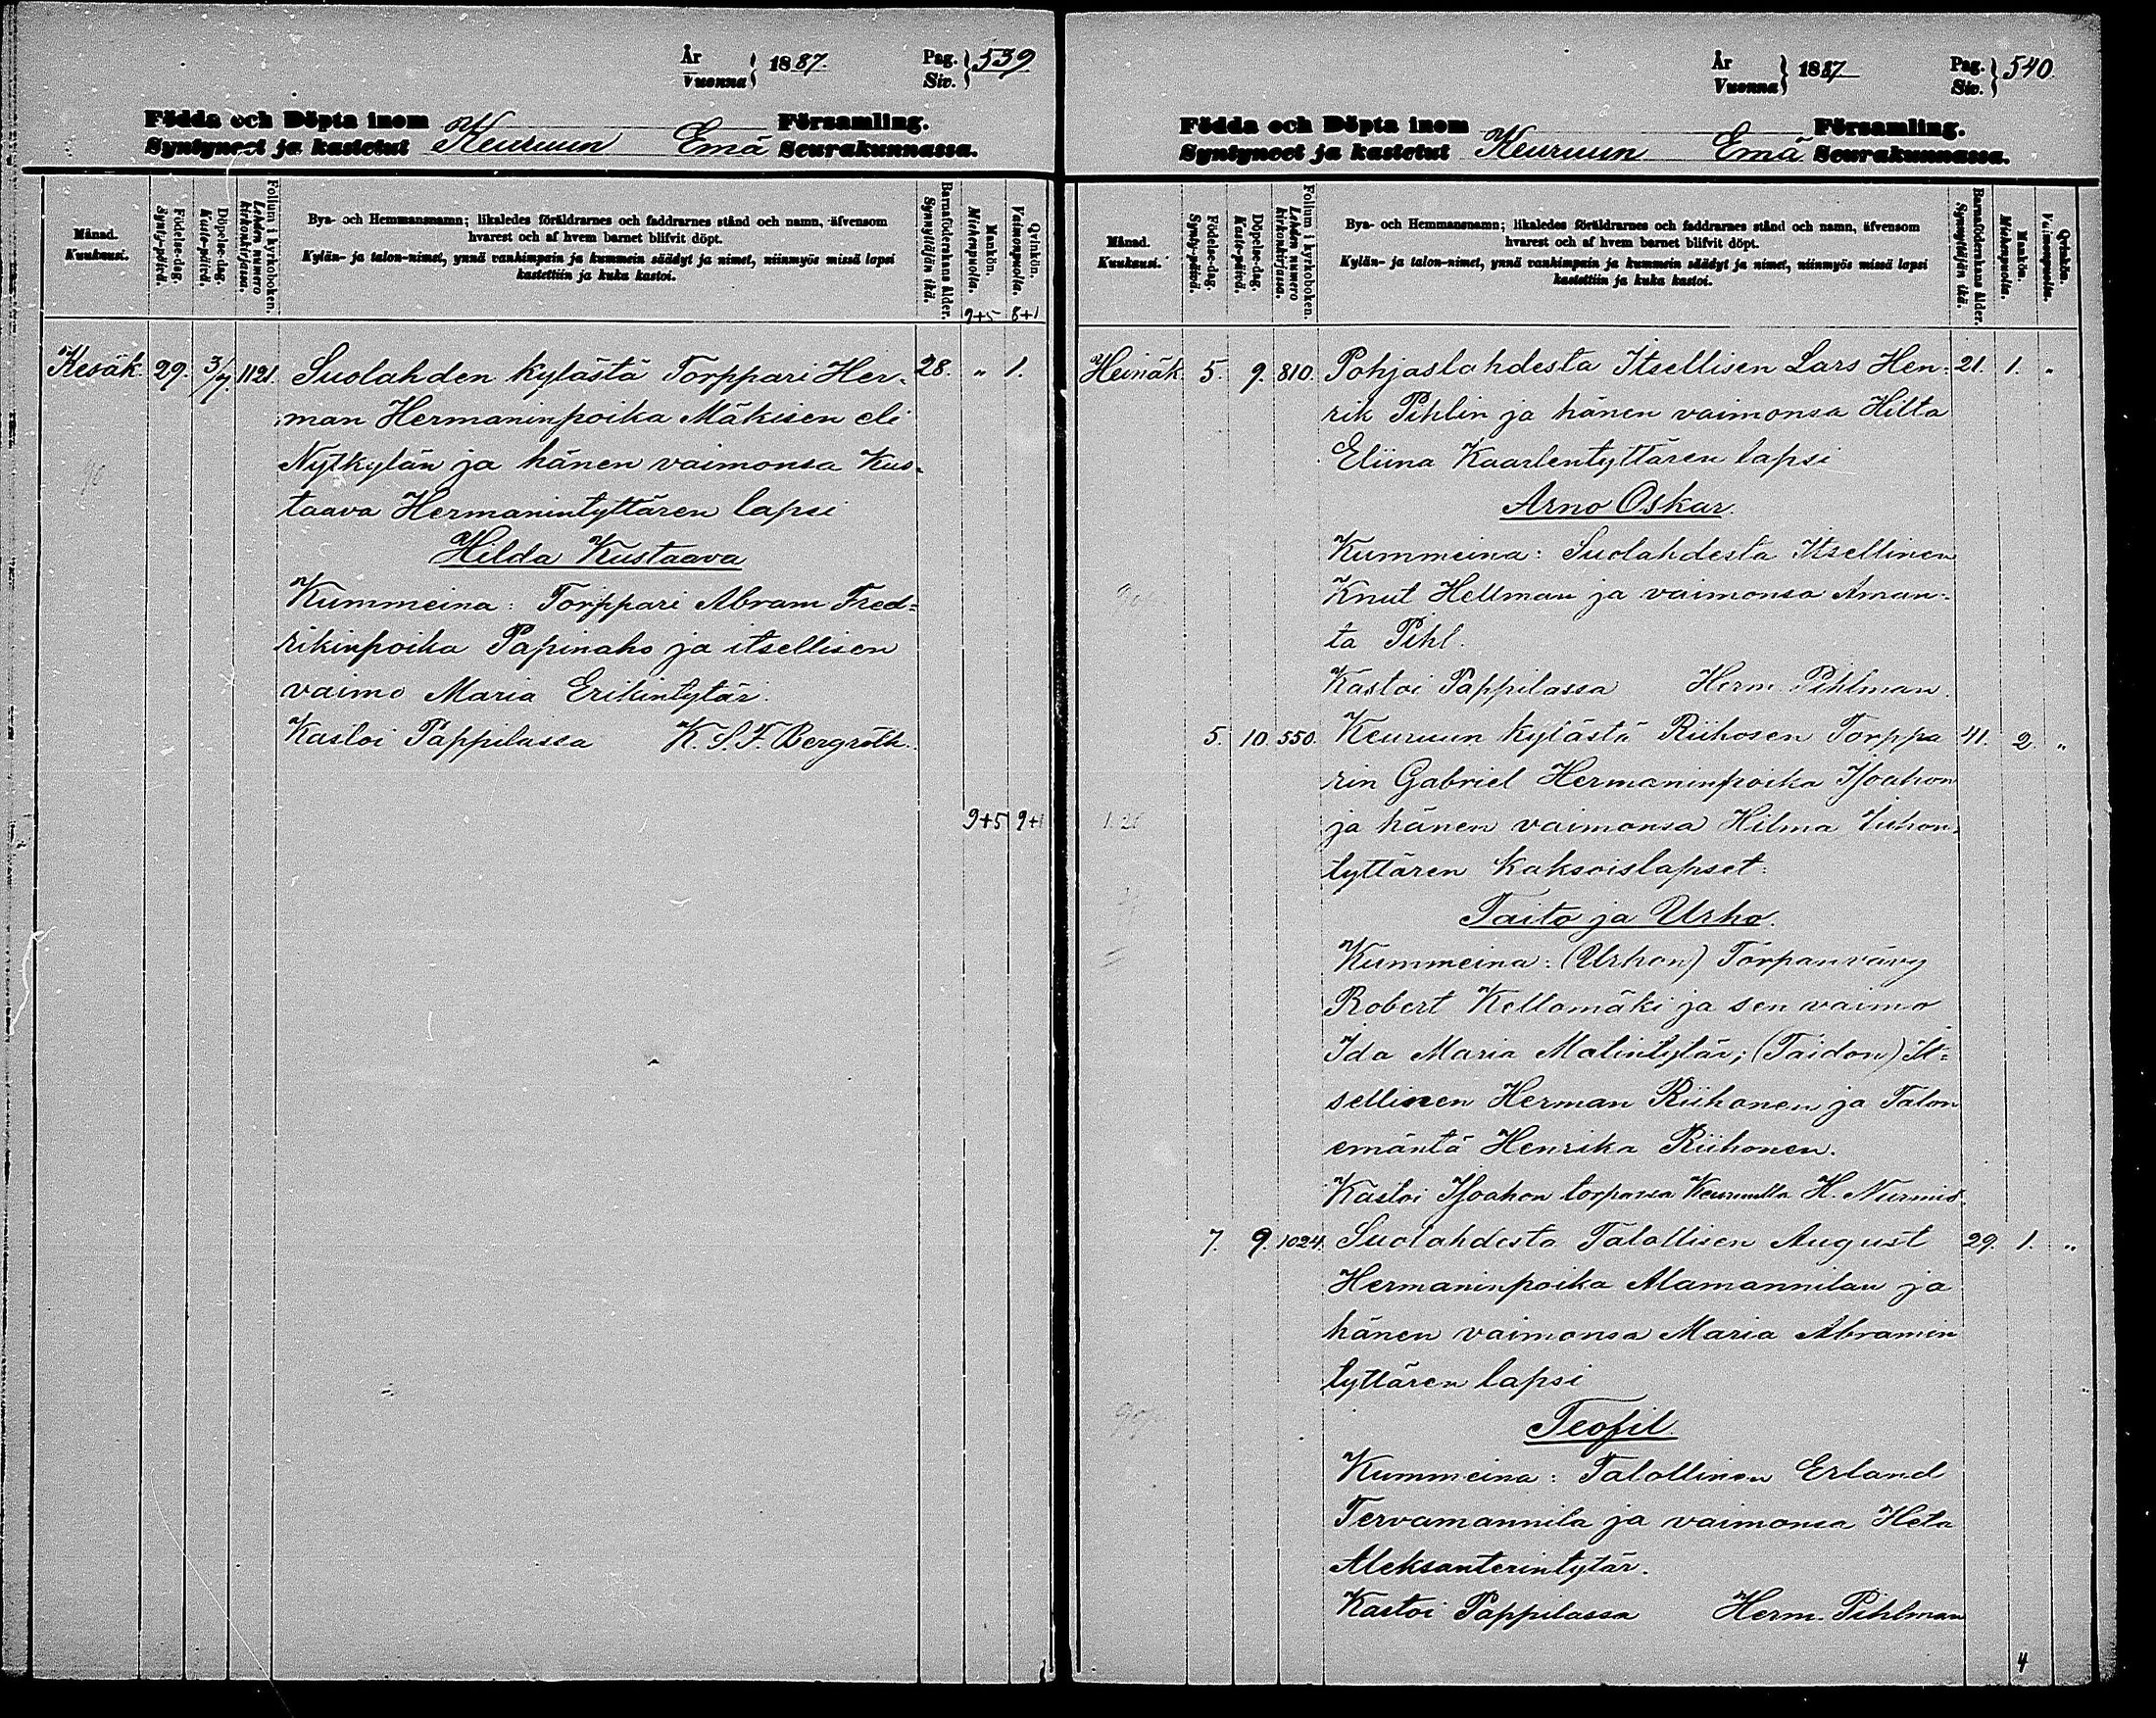 År
Vuonna } 1887. Pag.
Siv. } 539
Födda och Döpta inom Församling.
Syntyneet ja kastetut Keuruun Emä Seurakunnassa.
Månad.
Kuukausi.
Födelse-dag.
Synty-päivä.
Döpelse-dag.
Kaste-päivä.
Folium i kyrkoboken.
Lehden numero
kirkonkirjassa.
Bya- och Hemmansnamn; likaledes föräldrarnes och faddrarnes stånd och namn, äfvensom
hvarest och af hvem barnet blifvit döpt.
Kylän- ja talon-nimet, ynnä vanhimpain ja kummein säädyt ja nimet, niinmyös missä lapsi
kastettiin ja kuka kastoi.
Barnaföderskans ålder.
Synnyttäjän ikä.
Mankön.
Miehenpuolia.
Qvinkön.
Vaimonpuolia.
9+5 8+1
Kesäk. 29. 3/7. 1121. Suolahden kylästä Torppari Her- 28. " 1.
man Hermaninpoika Mäkisen eli
Nytkylän ja hänen vaimonsa Kus-
taava Hermanintyttären lapsi
Hilda Kustaava
Kummeina: Torppari Abram Fred-
rikinpoika Papinaho ja itsellisen
vaimo Maria Erikintytär.
Kastoi Pappilassa K. S. F. Bergroth.
9+5 9+1
År
Vuonna } 1887 Pag.
Siv. } 540.
Födda och Döpta inom Församling.
Syntyneet ja kastetut Keuruun Emä Seurakunnassa.
Månad.
Kuukausi.
Födelse-dag.
Synty-päivä.
Döpelse-dag.
Kaste-päivä.
Folium i kyrkoboken.
Lehden numero
kirkonkirjassa.
Bya- och Hemmansnamn; likaledes föräldrarnes och faddrarnes stånd och namn, äfvensom
hvarest och af hvem barnet blifvit döpt.
Kylän- ja talon-nimet, ynnä vanhimpain ja kummein säädyt ja nimet, niinmyös missä lapsi
kastettiin ja kuka kastoi.
Barnaföderskans ålder.
Synnyttäjän ikä.
Mankön.
Miehenpuolia.
Qvinkön.
Vaimonpuolia.
Heinäk. 5. 9. 810. Pohjaslahdesta Itsellisen Lars Hen- 21. 1. "
rik Pihlin ja hänen vaimonsa Hilta
Eliina Kaarlentyttären lapsi
Arno Oskar.
Kummeina: Suolahdesta Itsellinen
Knut Hellman ja vaimonsa Aman-
ta Pihl.
Kastoi Pappilassa Herm. Pihlman.
5. 10. 550. Keuruun kylästä Riihosen Torppa 41. 2. "
rin Gabriel Hermaninpoika Isoahon
ja hänen vaimonsa Hilma
tyttären kaksoislapset:
Taito ja Urho.
Kummeina: (Urhon) Torpanvävy
Robert Kellomäki ja sen vaimo
Ida Maria Matintytär; (Taidon) It-
sellinen Herman Riihonen ja Talon
emäntä Henrika Riihonen.
Kastoi Isoahon torpassa Keuruulla H. Nurmio.
7. 9. 1024. Suolahdesta Talollisen August 29. 1. "
Hermaninpoika Alamannilan ja
hänen vaimonsa Maria Abramin
tyttären lapsi
Teofil.
Kummeina: Talollinen Erland
Tervamannila ja vaimonsa Heta
Aleksanterintytär.
Kastoi Pappilassa Herm. Pihlman
4